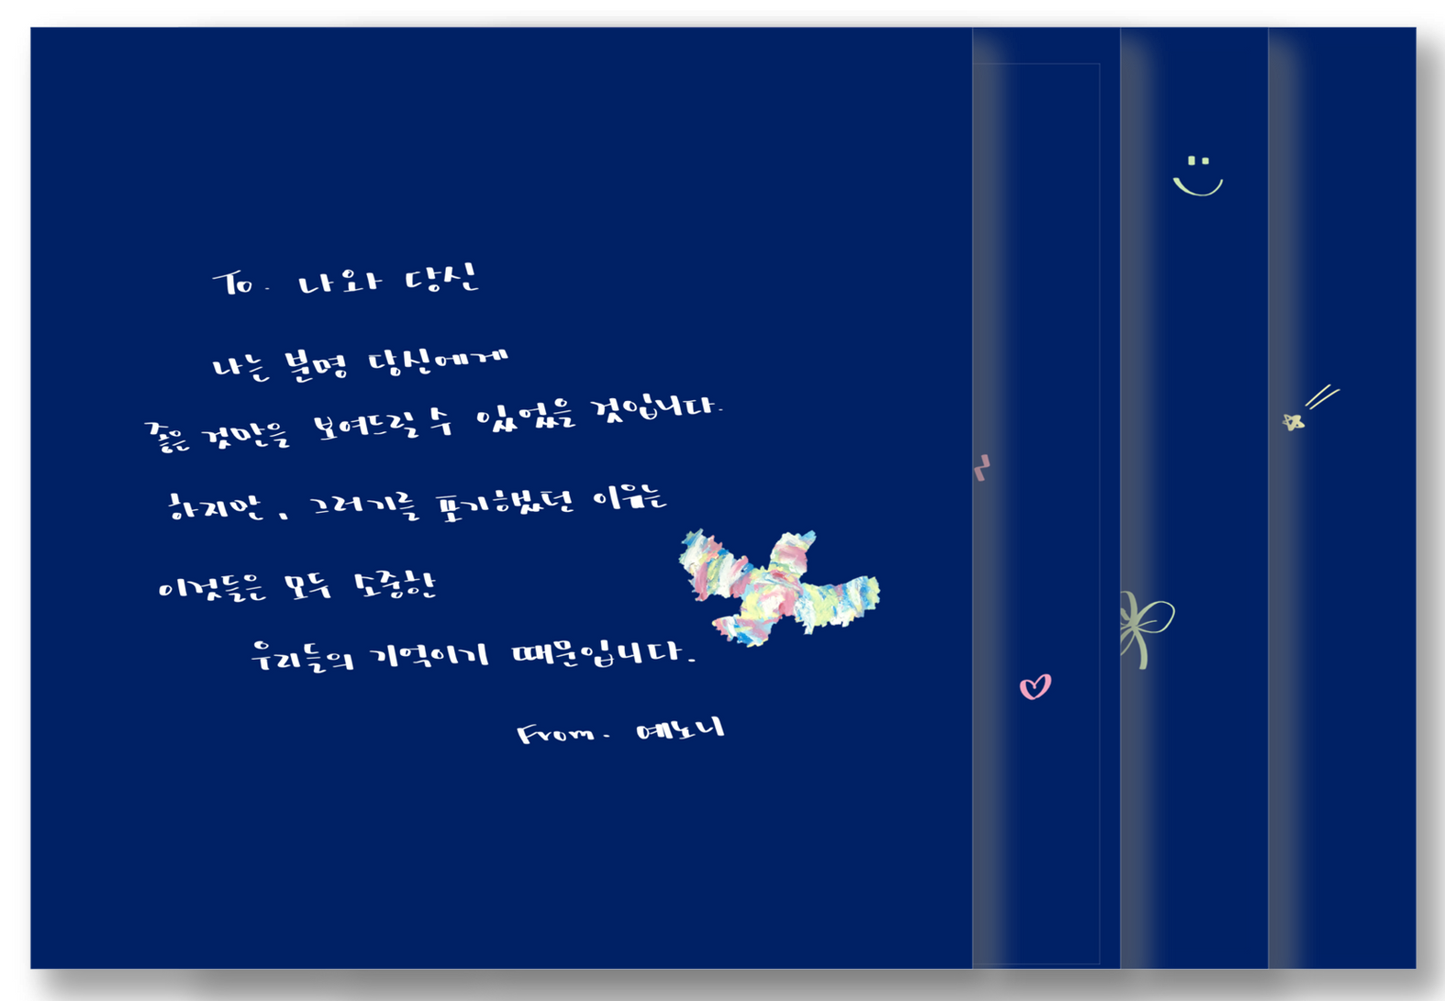 To. 나와 당신
나는 분명 당신에게
좋은 것만을 보여드릴 수 있었을 것입니다.
하지만, 그러기를 포기했던 이유는
이것들은 모두 소중한
우리들의 기억이기 때문입니다.
From. 예노니